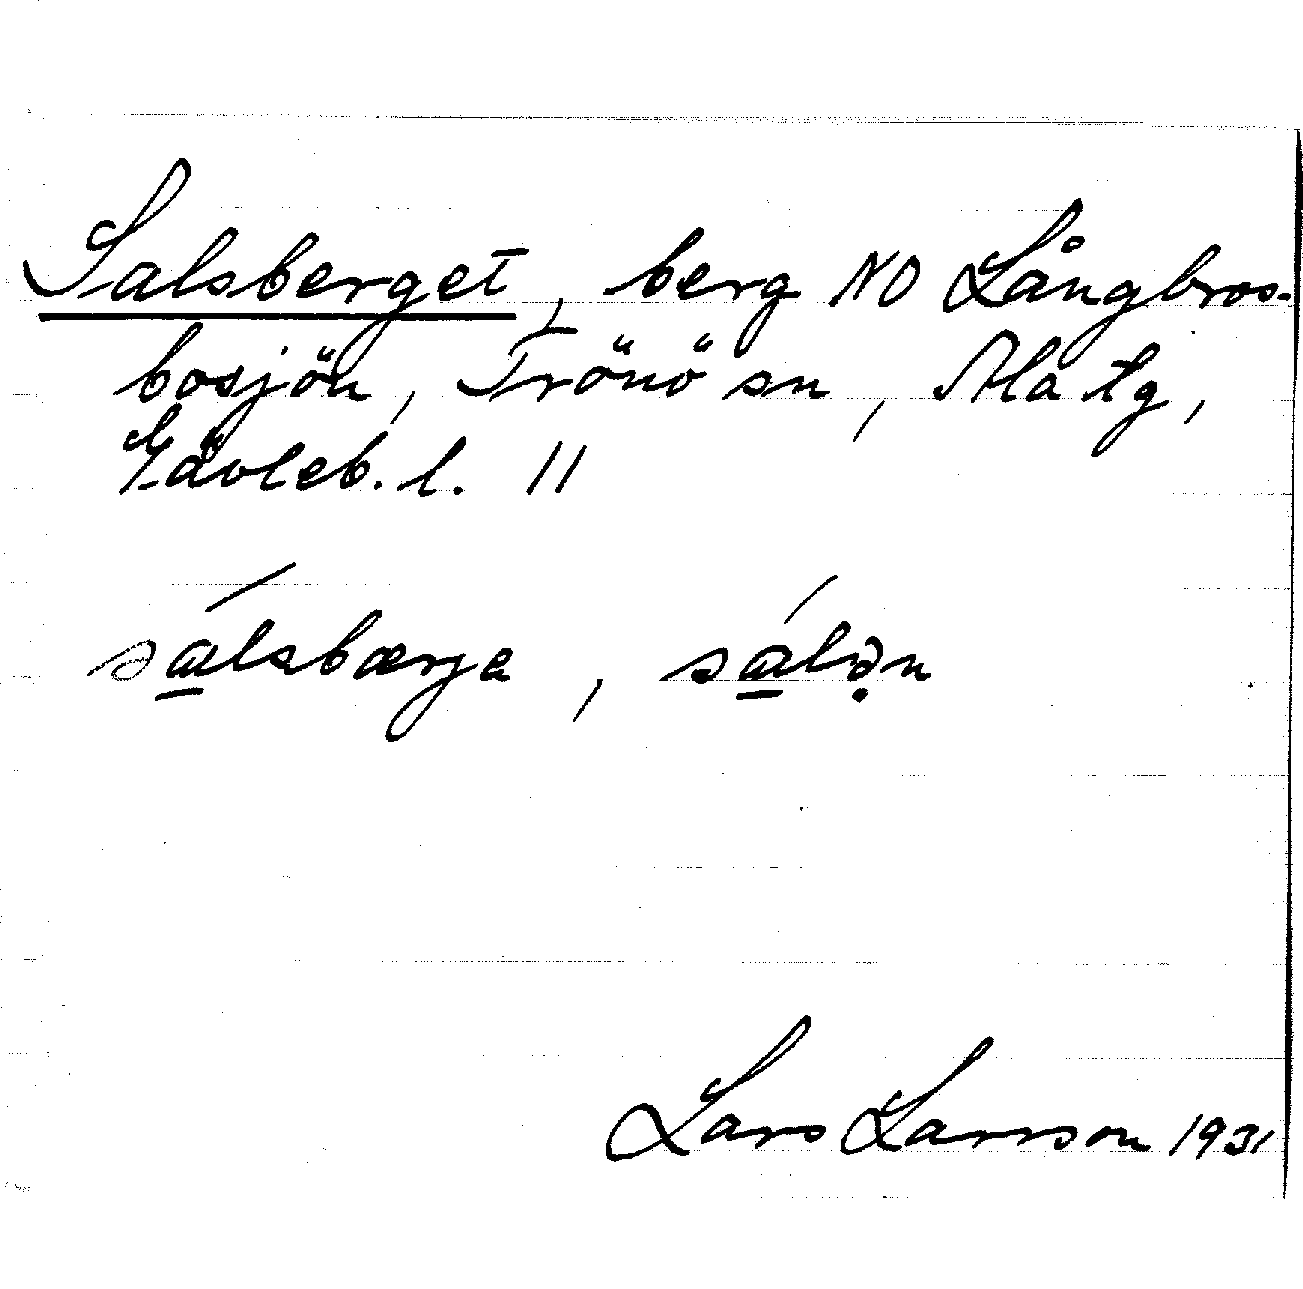 Salsberget, berg NO Långbros-
bosjön, Trönö sn, Ala tg,
Gävleb. l. 11
sálsbærje, sálən
Lars Larsson 1931